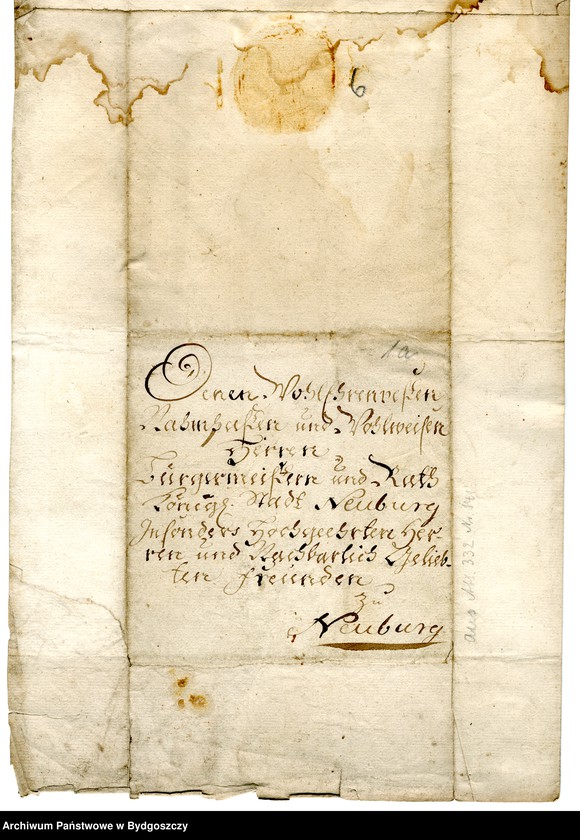 6
1a
Denen WohlEhrenvesten
Nahmhafften und Wohlweisen
Herren
Bürgermeistern und Rath
Königl. Stadt Neuburg
Insonders Hochgeehrten Her-
ren und Nachbarlich Gelieb-
ten Freunden
zu
Neuburg
aus Abt. 333
Archiwum Państwowe w Bydgoszczy